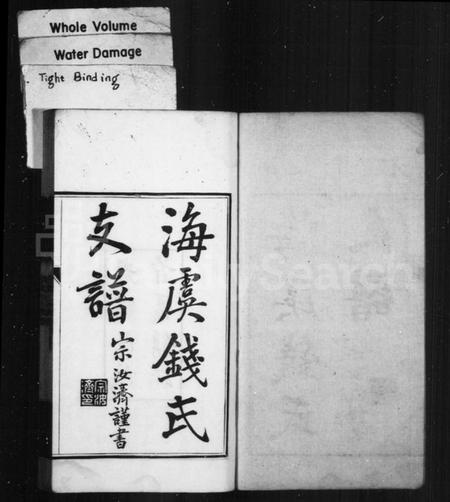 Whole Volume
Water Damage
Tight Binding
海虞錢氏
支譜
宗汝濟謹書
FamilySearch